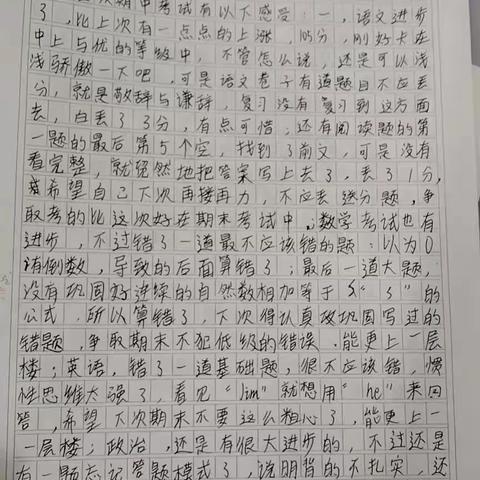 次期中考试有以下感受：一，语文进步
了，比上次有一点点的上涨，105分，刚好卡在
中上与优的等级中，不管怎么说，还是可以浅
浅骄傲一下吧，可是语文卷子有道题目不应丢
分，就是敬辞与谦辞，复习没有复习到这方面
去，白丢了3分，有点可惜；还有阅读题的第
一题的最后第5个空，找到了前文，可是没有
看完整，就贸然地把答案写上去了，丢了1分，
希望自己下次再接再力，不应丢这分题，争
取考的比这次好在期末考试中；数学考试也有
进步，不过错了一道最不应该错的题：以为0
有倒数，导致的后面算错了；最后一道大题，
没有巩固好连续的自然数相加等于 的
公式，所以算错了，下次得认真攻巩固写过的
错题，争取期末不犯低级的错误，能更上一层
楼；英语，错了一道基础题，很不应该错，惯
性思维太强了，看见“lim”就想用“he”来回
答，希望下次期末不要这么粗心了，能更上一
一层楼；政治，还是有很大进步的，不过还是
有一题忘记答题模式了，说明背的不扎实，还